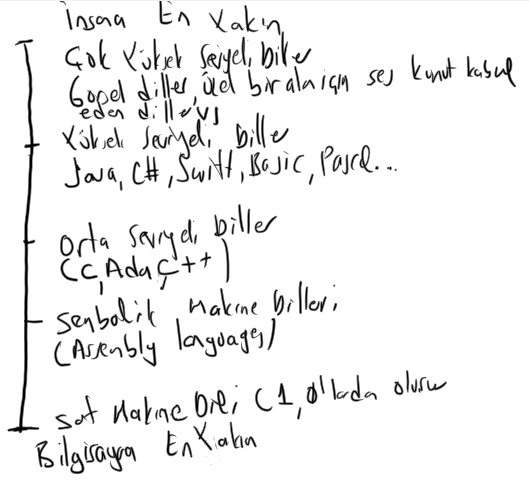 İnsana En Yakın
Çok Yüksek Seviyeli Diller
Görsel diller, özel bir alan için ses komut kabul
eden diller vs
Yüksek Seviyeli Diller
Java, C#, Swift, Basic, Pascal...
Orta Seviyeli Diller
(C, Ada, C++)
Senbolik Makine Dilleri
(Assembly languages)
Saf Makine Dili (1, 0'lardan oluşur
Bilgisayara En Yakın